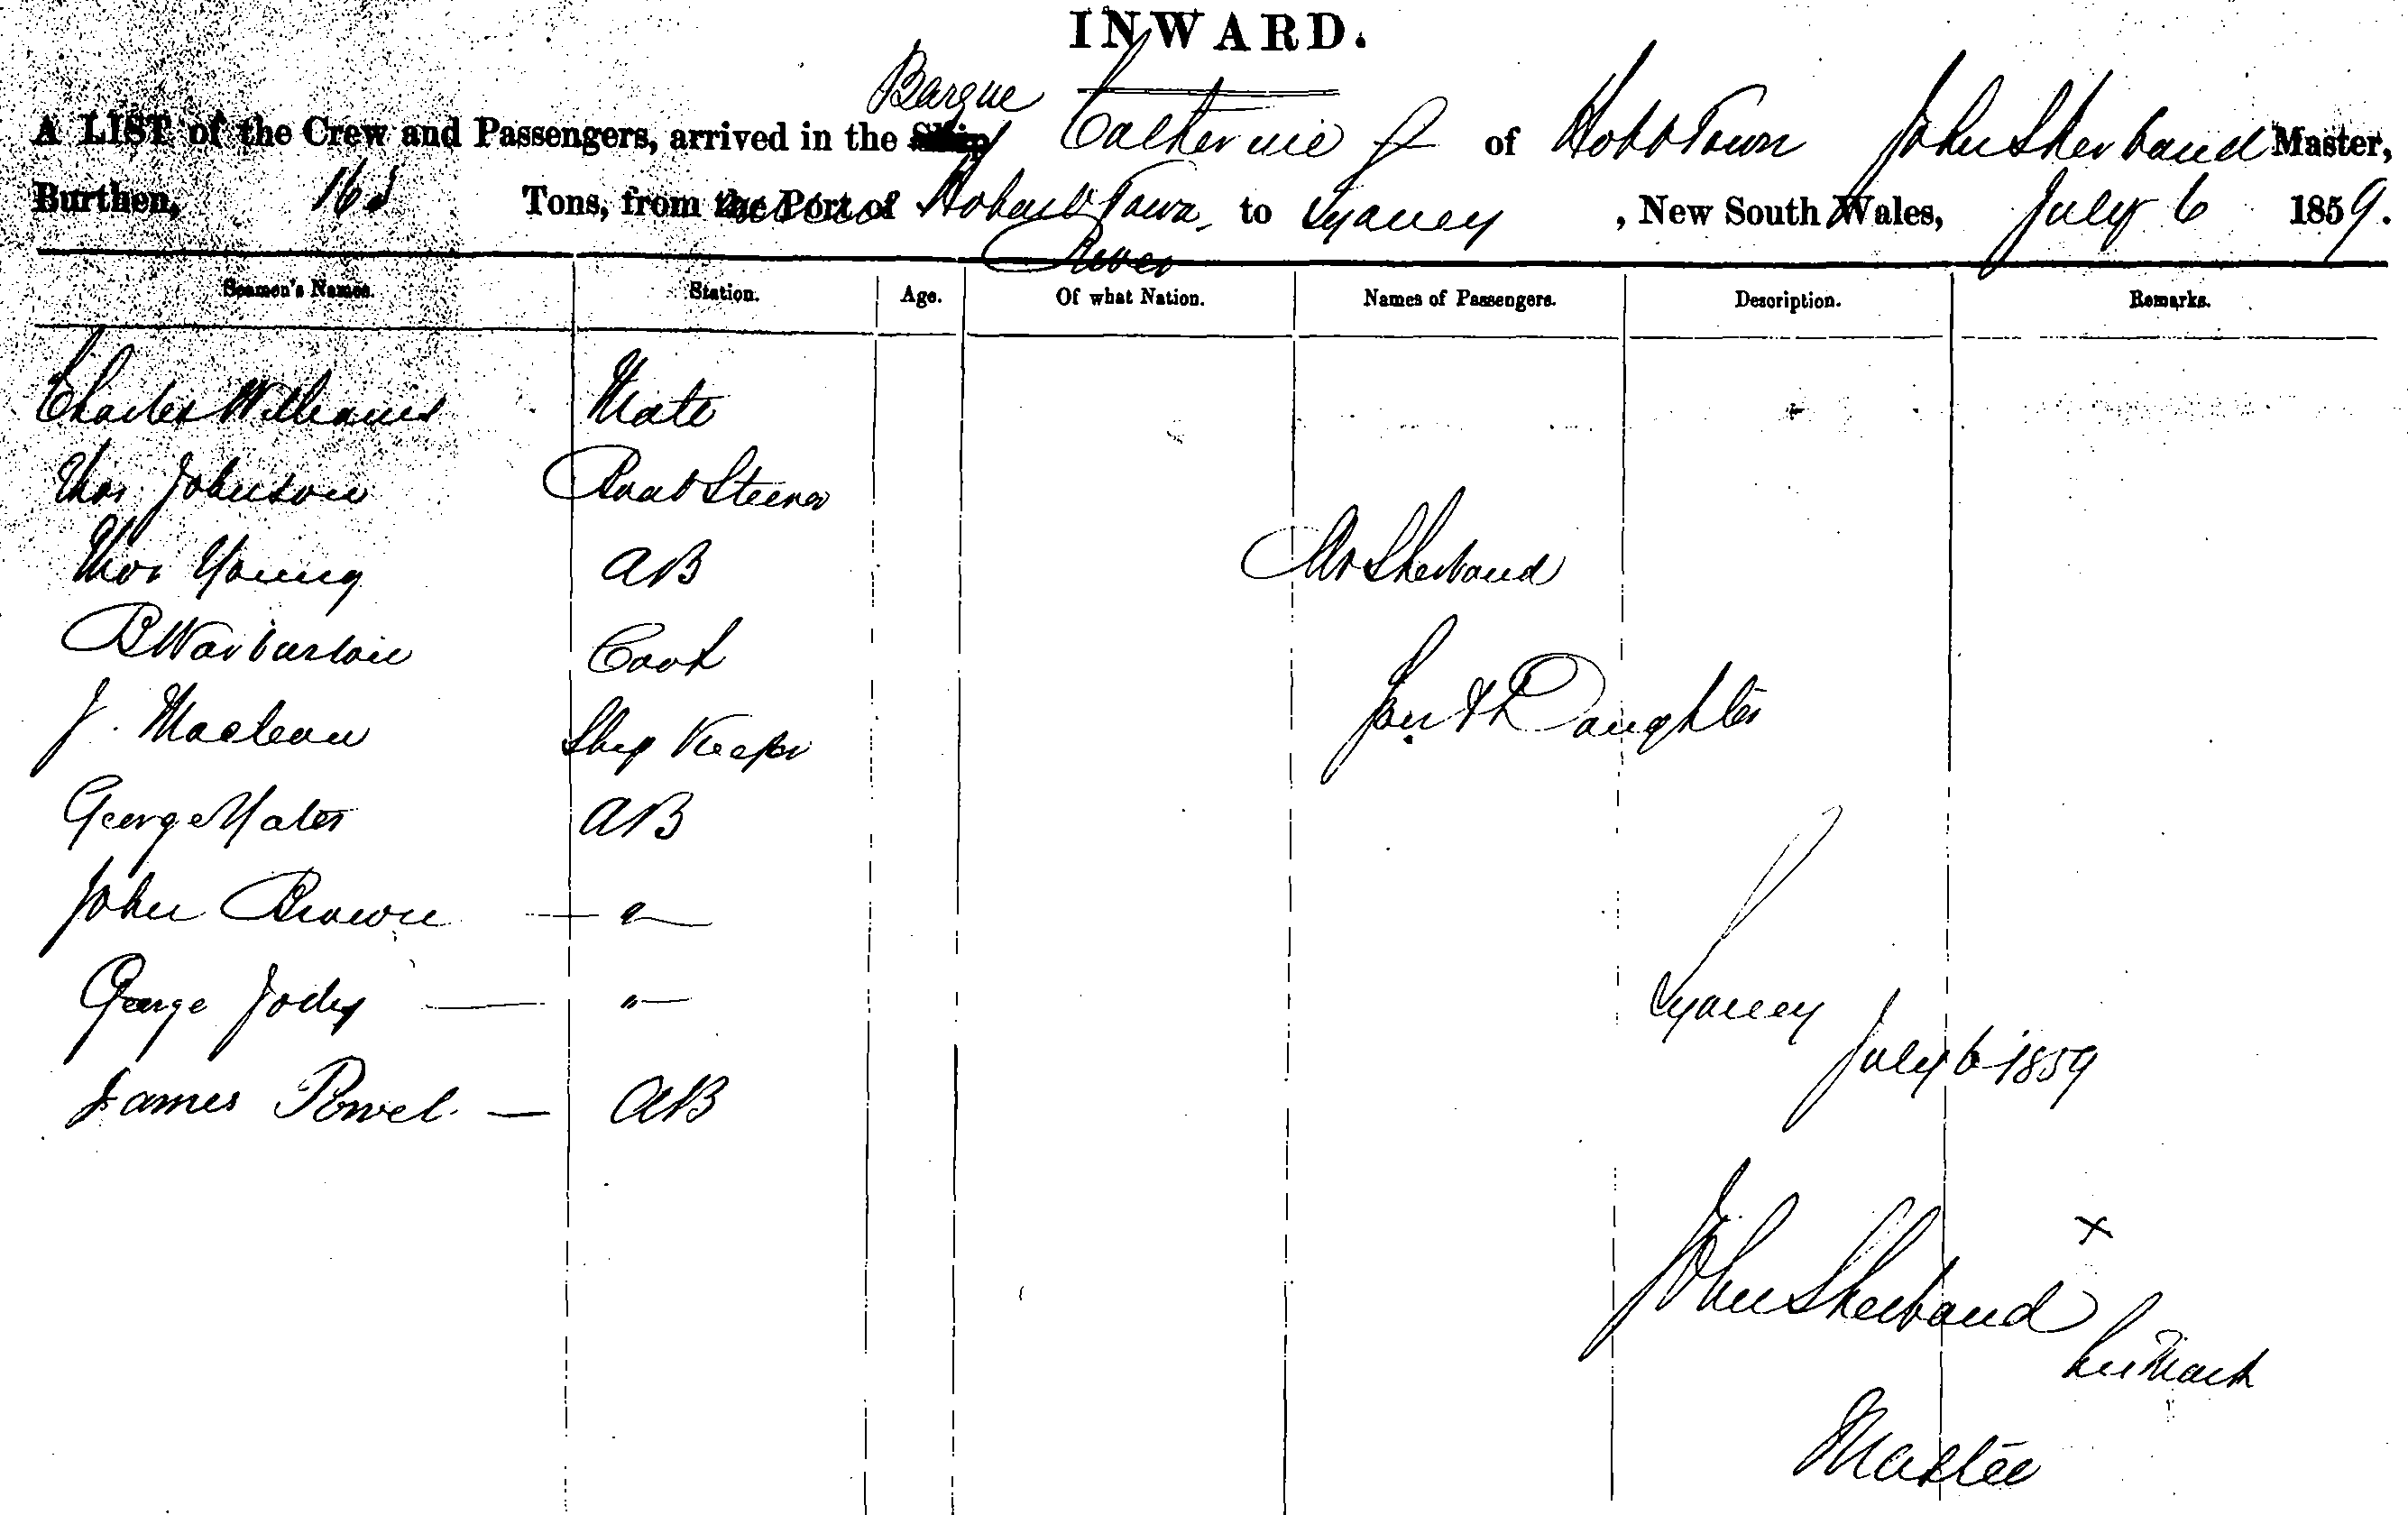 INWARD.
Barque
A LIST of the Crew and Passengers, arrived in the Ship Catherine of Hob Town John Sherband Master,
Burthen, Tons, from the Port of Hobart Town to Sydney, New South Wales, July 6 1859.
River
Seamen's Names. Station. Age. Of what Nation. Names of Passengers. Description. Remarks.
Charles Williams Mate
Thos Johnson Boat Steerer
Thos Young AB Sherband
B Warburton Cook
J. Maclean Ship Keeper Son & Daughter
George Yates AB
John Brown — "
George — "
James Powel — AB
Sydney
July 6 1859
x
John Sherband
his Mark
Master